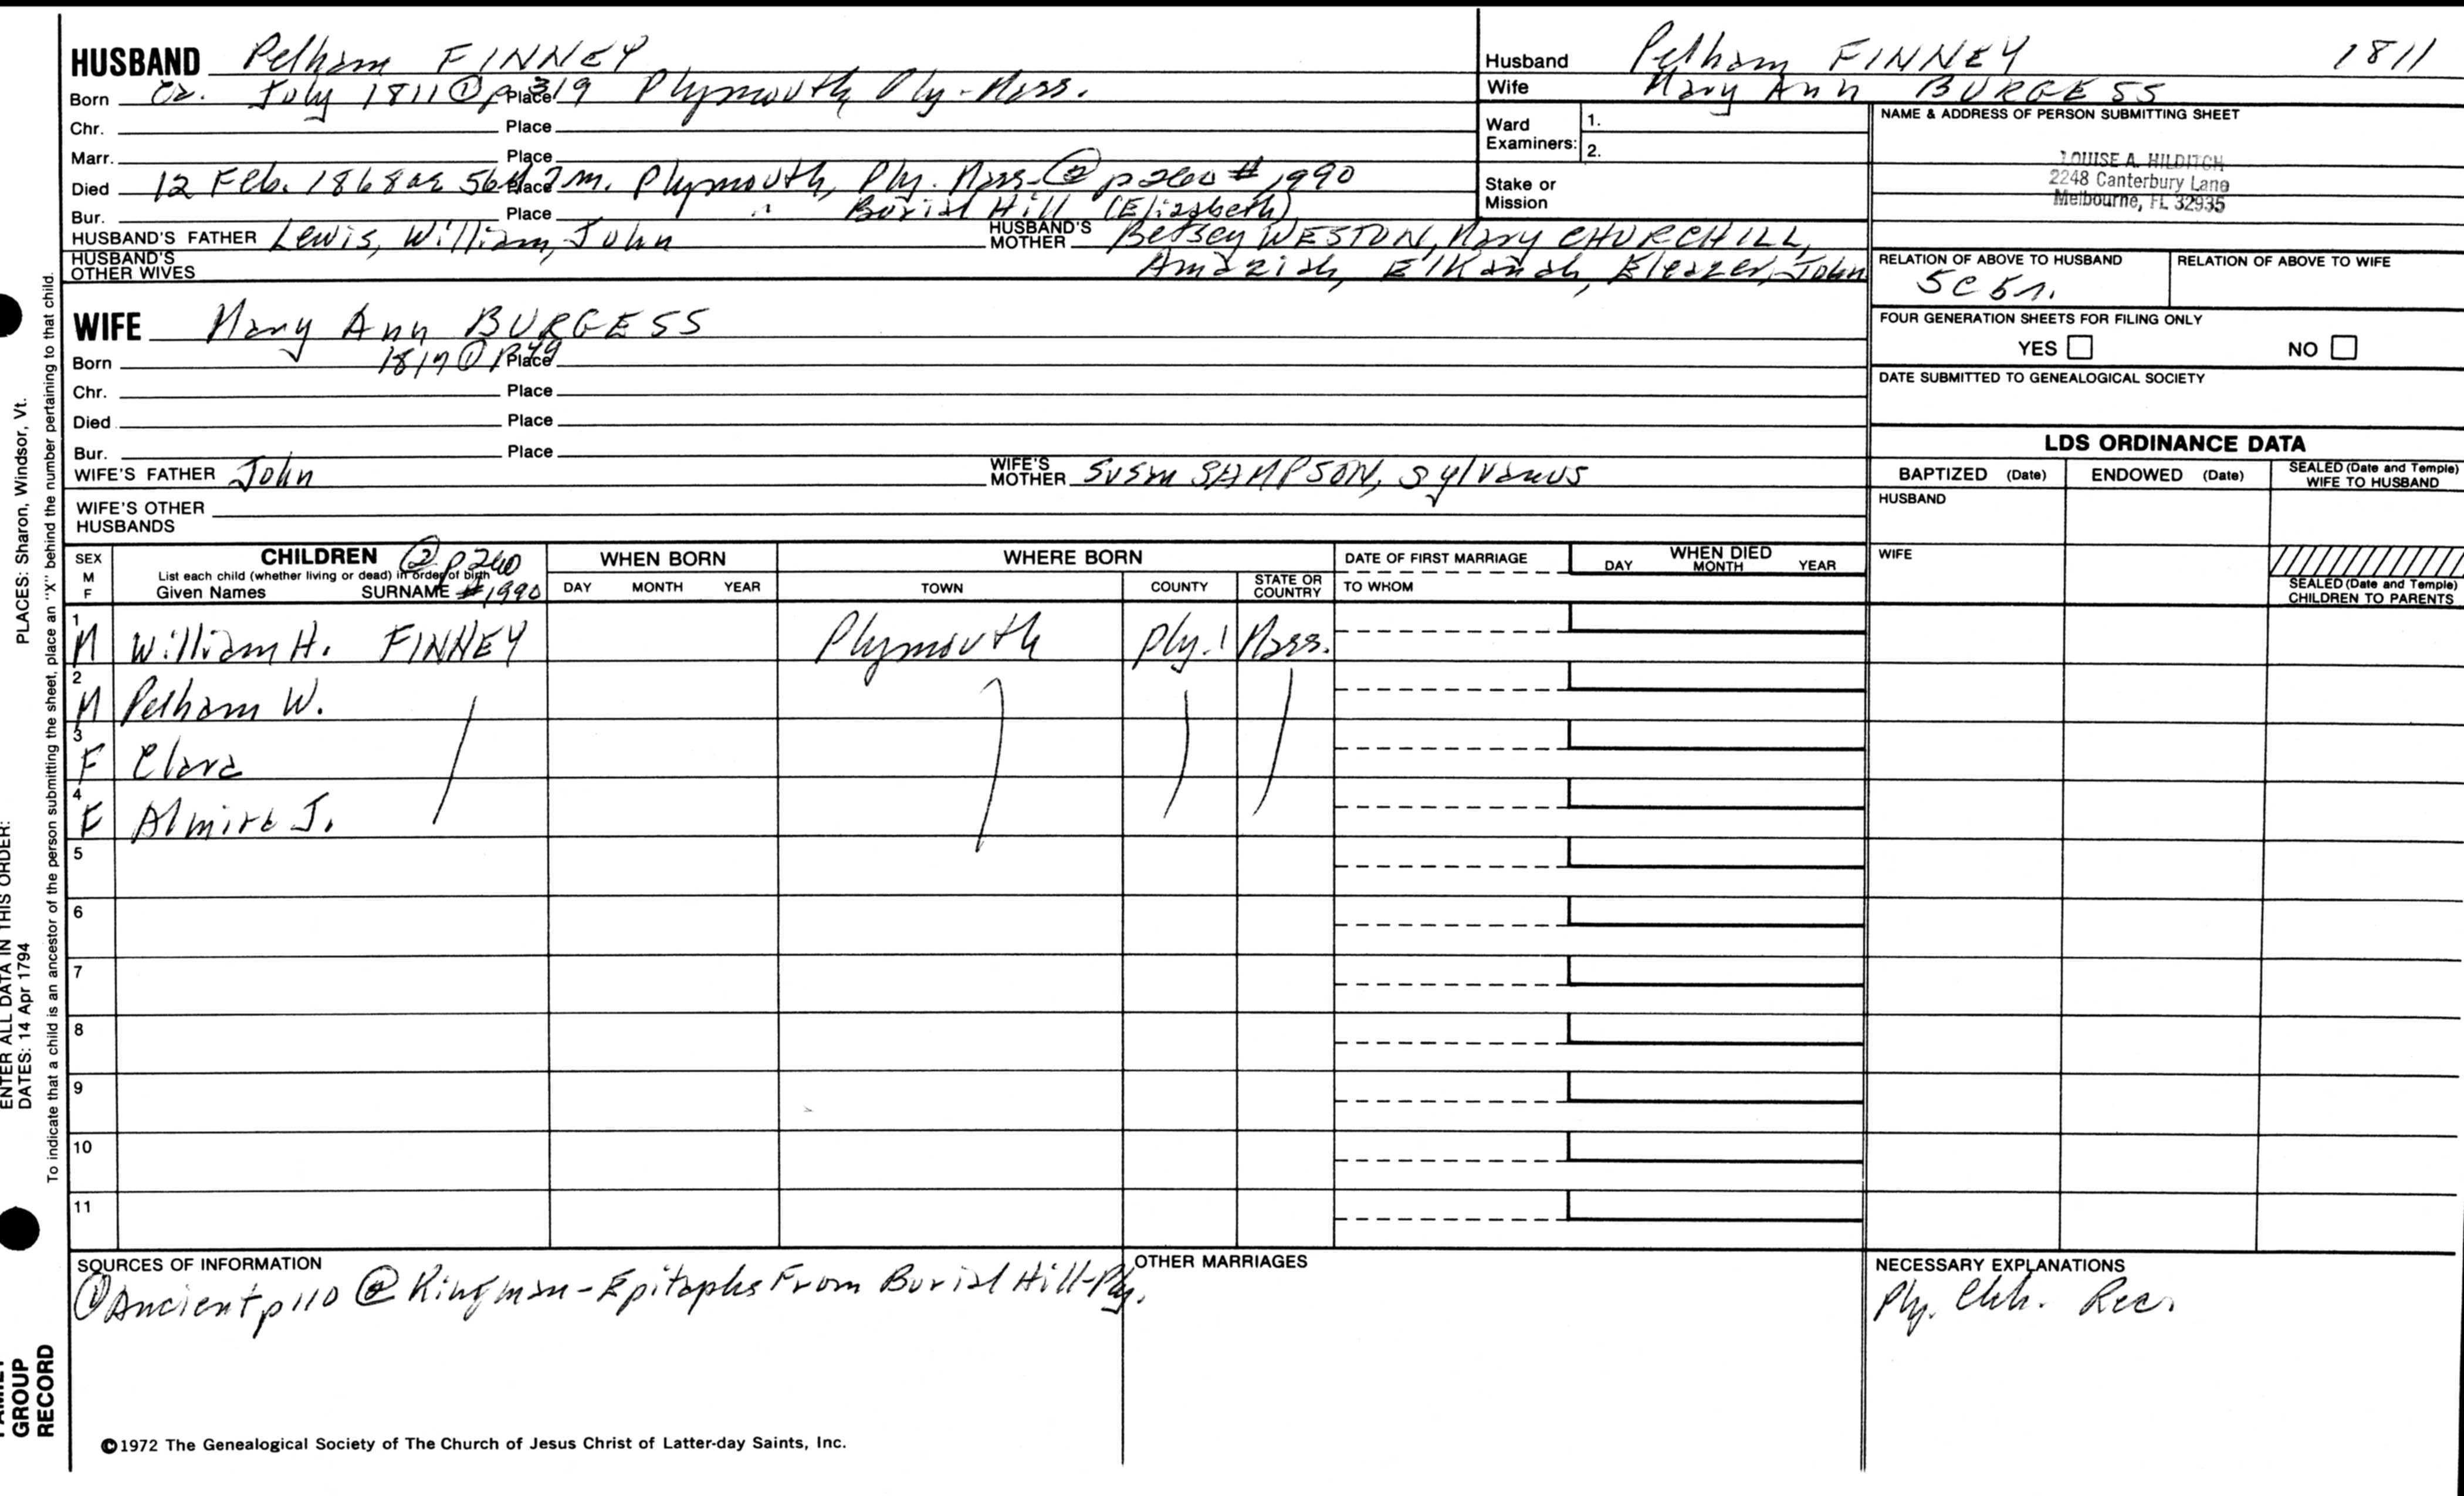 HUSBAND Pelham FINNEY
Born Ca. July 1811 ① p 319 Place Plymouth, Ply. Mass.
Chr. Place
Marr. Place
Died 12 Feb. 1868 ae 56y 7m. Place Plymouth, Ply. Mass. ② p 260 # 1990
Bur. Place " Burial Hill (Elizabeth)
HUSBAND'S FATHER Lewis, William, John HUSBAND'S MOTHER Betsey WESTON, Mary CHURCHILL,
HUSBAND'S OTHER WIVES Amaziah, Elkanah, Eleazer, John
WIFE Mary Ann BURGESS
Born 1817 ① p 49 Place
Chr. Place
Died Place
Bur. Place
WIFE'S FATHER John WIFE'S MOTHER Susan SAMPSON, Sylvanus
WIFE'S OTHER HUSBANDS
Husband Pelham FINNEY 1811
Wife Mary Ann BURGESS
Ward Examiners: 1.
2.
Stake or Mission
NAME & ADDRESS OF PERSON SUBMITTING SHEET
LOUISE A. HILDITCH
2248 Canterbury Lane
Melbourne, FL 32935
RELATION OF ABOVE TO HUSBAND RELATION OF ABOVE TO WIFE
5C 5r.
FOUR GENERATION SHEETS FOR FILING ONLY
YES NO
DATE SUBMITTED TO GENEALOGICAL SOCIETY
LDS ORDINANCE DATA
BAPTIZED (Date) ENDOWED (Date) SEALED (Date and Temple) WIFE TO HUSBAND
HUSBAND
WIFE
SEALED (Date and Temple) CHILDREN TO PARENTS
SEX M F CHILDREN ② p 260 WHEN BORN WHERE BORN DATE OF FIRST MARRIAGE WHEN DIED
List each child (whether living or dead) in order of birth
Given Names SURNAME # 1990 DAY MONTH YEAR TOWN COUNTY STATE OR COUNTRY TO WHOM DAY MONTH YEAR
1 M William H. FINNEY Plymouth Ply. Mass.
2 M Pelham W.
3 F Clara
4 F Almira J.
5
6
7
8
9
10
11
SOURCES OF INFORMATION
① Ancient p 110 ② Kingman - Epitaphs From Burial Hill - Ply.
OTHER MARRIAGES
NECESSARY EXPLANATIONS
Ply. Chh. Rec.
©1972 The Genealogical Society of The Church of Jesus Christ of Latter-day Saints, Inc.
PLACES: Sharon, Windsor, Vt.
ENTER ALL DATA IN THIS ORDER:
DATES: 14 Apr 1794
To indicate that a child is an ancestor of the person submitting the sheet, place an "X" behind the number pertaining to that child.
FAMILY
GROUP
RECORD